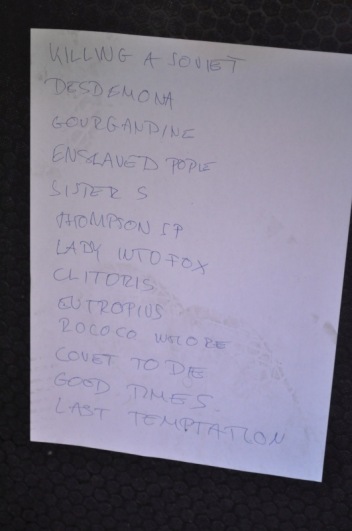 KILLING A SOVIET
DESDEMONA
GOURGANDINE
ENSLAVED POPLE
SISTER S
THOMPSON SP
LADY INTO FOX
CLITORIS
EUTROPIUS
ROCOCO WHORE
COVET TO DIE
GOOD TIMES
LAST TEMPTATION